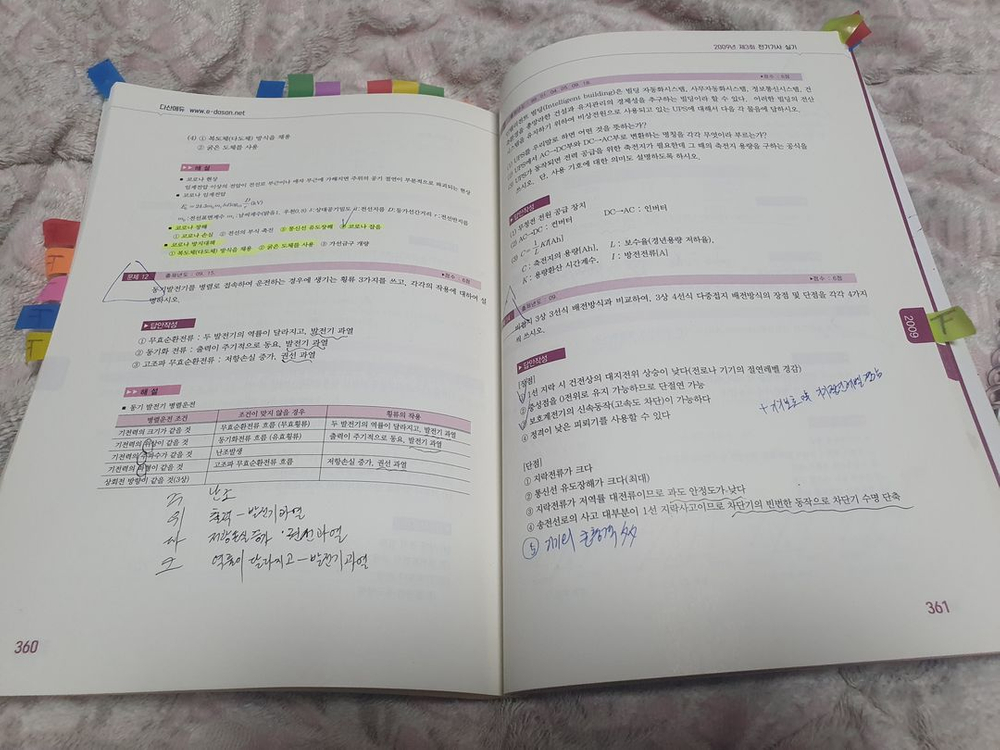 다산에듀 www.e-dasan.net
(4) ① 복도체(다도체) 방식을 채용
② 굵은 도체를 사용
▶▶해 설
■ 코로나 현상
임계전압 이상의 전압이 전선로 부근이나 애자 부근에 가해지면 주위의 공기 절연이 부분적으로 파괴되는 현상
■ 코로나 임계전압
■ 코로나 장해
① 코로나 손실 ② 전선의 부식 촉진 ③ 통신선 유도장해 ④ 코로나 잡음
■ 코로나 방지대책
① 복도체(다도체) 방식을 채용 ② 굵은 도체를 사용 ③ 가선금구 개량
문제 12 출제년도 : 09. 15. •점수 : 6점
동기발전기를 병렬로 접속하여 운전하는 경우에 생기는 횡류 3가지를 쓰고, 각각의 작용에 대하여 설
명하시오.
▶답안작성
① 무효순환전류 : 두 발전기의 역률이 달라지고, 발전기 과열
② 동기화 전류 : 출력이 주기적으로 동요, 발전기 과열
③ 고조파 무효순환전류 : 저항손실 증가, 권선 과열
▶▶해 설
■ 동기 발전기 병렬운전
병렬운전 조건 조건이 맞지 않을 경우 횡류의 작용
기전력의 크기가 같을 것 무효순환전류 흐름 (무효횡류) 두 발전기의 역률이 달라지고, 발전기 과열
기전력의 위상이 같을 것 동기화전류 흐름 (유효횡류) 출력이 주기적으로 동요, 발전기 과열
기전력의 주파수가 같을 것 난조발생
기전력의 파형이 같을 것 고조파 무효순환전류 흐름 저항손실 증가, 권선 과열
상회전 방향이 같을 것(3상)
난조
위 출력 - 발전기과열
저항손실 증가 · 권선과열
역률이 달라지고 - 발전기 과열
360
2009년 제3회 전기기사 실기
•점수 : 6점
빌딩(Intelligent building)은 빌딩 자동화시스템, 사무자동화시스템, 정보통신시스템, 건
총망라한 건설과 유지관리의 경제성을 추구하는 빌딩이라 할 수 있다. 이러한 빌딩의 전산
유지하기 위하여 비상전원으로 사용되고 있는 UPS에 대해서 다음 각 물음에 답하시오.
(1) UPS를 우리말로 하면 어떤 것을 뜻하는가?
(2) UPS에서 AC→DC부와 DC→AC부로 변환하는 명칭을 각각 무엇이라 부르는가?
(3) UPS가 동작되면 전력 공급을 위한 축전지가 필요한데 그 때의 축전지 용량을 구하는 공식을
쓰시오. 단, 사용 기호에 대한 의미도 설명하도록 하시오.
▶답안작성
(1) 무정전 전원 공급 장치
(2) AC→DC : 컨버터 DC→AC : 인버터
(3) C = 1/L KI[Ah]
C : 축전지의 용량[Ah], L : 보수율(경년용량 저하율),
K : 용량환산 시간계수, I : 방전전류[A]
출제년도 : 09. •점수 : 6점
3상 3선식 배전방식과 비교하여, 3상 4선식 다중접지 배전방식의 장점 및 단점을 각각 4가지
씩 쓰시오.
▶답안작성
[장점]
① 1선 지락 시 건전상의 대지전위 상승이 낮다(전로나 기기의 절연레벨 경감)
② 중성점을 0전위로 유지 가능하므로 단절연 가능
③ 보호계전기의 신속동작(고속도 차단)이 가능하다
④ 정격이 낮은 피뢰기를 사용할 수 있다
[단점]
① 지락전류가 크다
② 통신선 유도장해가 크다(최대)
③ 지락전류가 저역률 대전류이므로 과도 안정도가 낮다
④ 송전선로의 사고 대부분이 1선 지락사고이므로 차단기의 빈번한 동작으로 차단기 수명 단축
⑤ 기기의 충격
2009
361